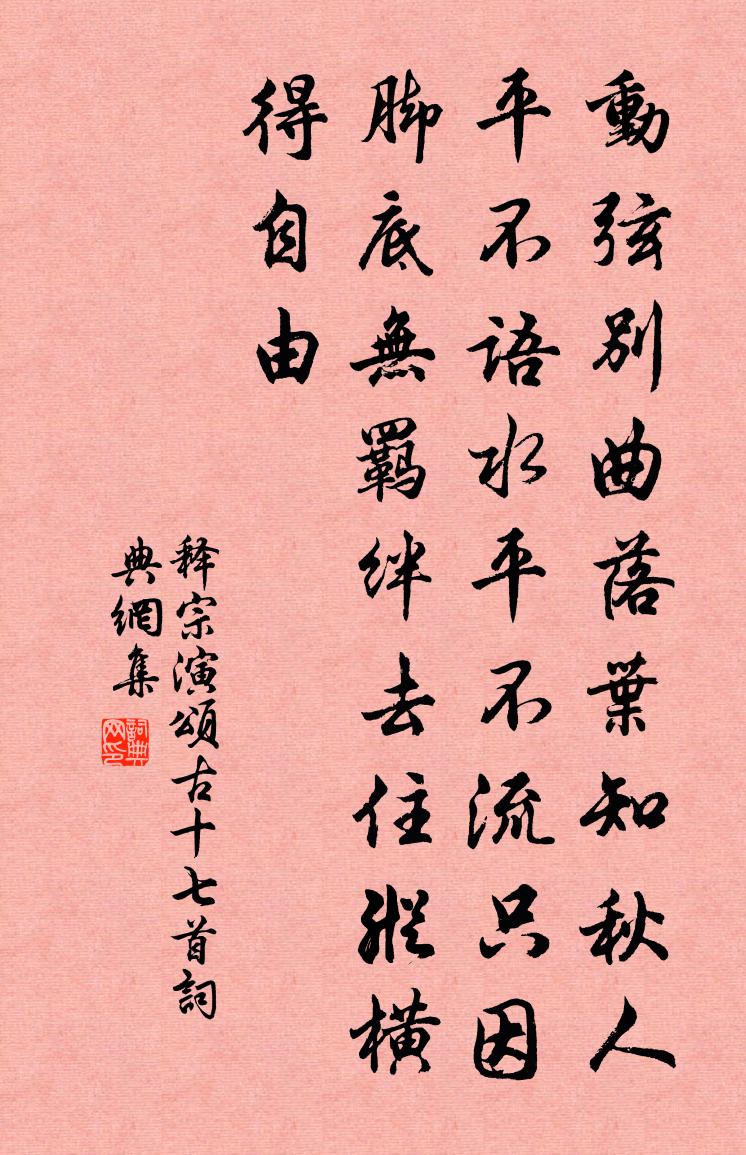 動弦別曲落葉知秋人
平不語水平不流只因
脚底無羈絆去住縱橫
得自由
释宗演頌古十七首詞
典網集
詞典
网印